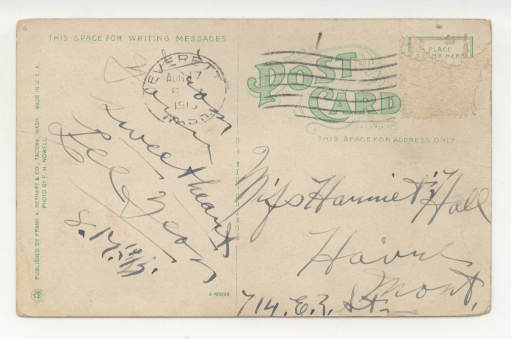 THIS SPACE FOR WRITING MESSAGES
PUBLISHED BY FRANK A. NOWELL & CO., TACOMA, WASH. MADE IN U.S.A.
PHOTO BY F. H. NOWELL
EVERETT
AUG 17
191
from
sweetheart
Lee
POST
CARD
PLACE
STAMP HERE
THIS SPACE FOR ADDRESS ONLY
Miss Harriet Hall
Havre
Mont,
714. E. 3, St.